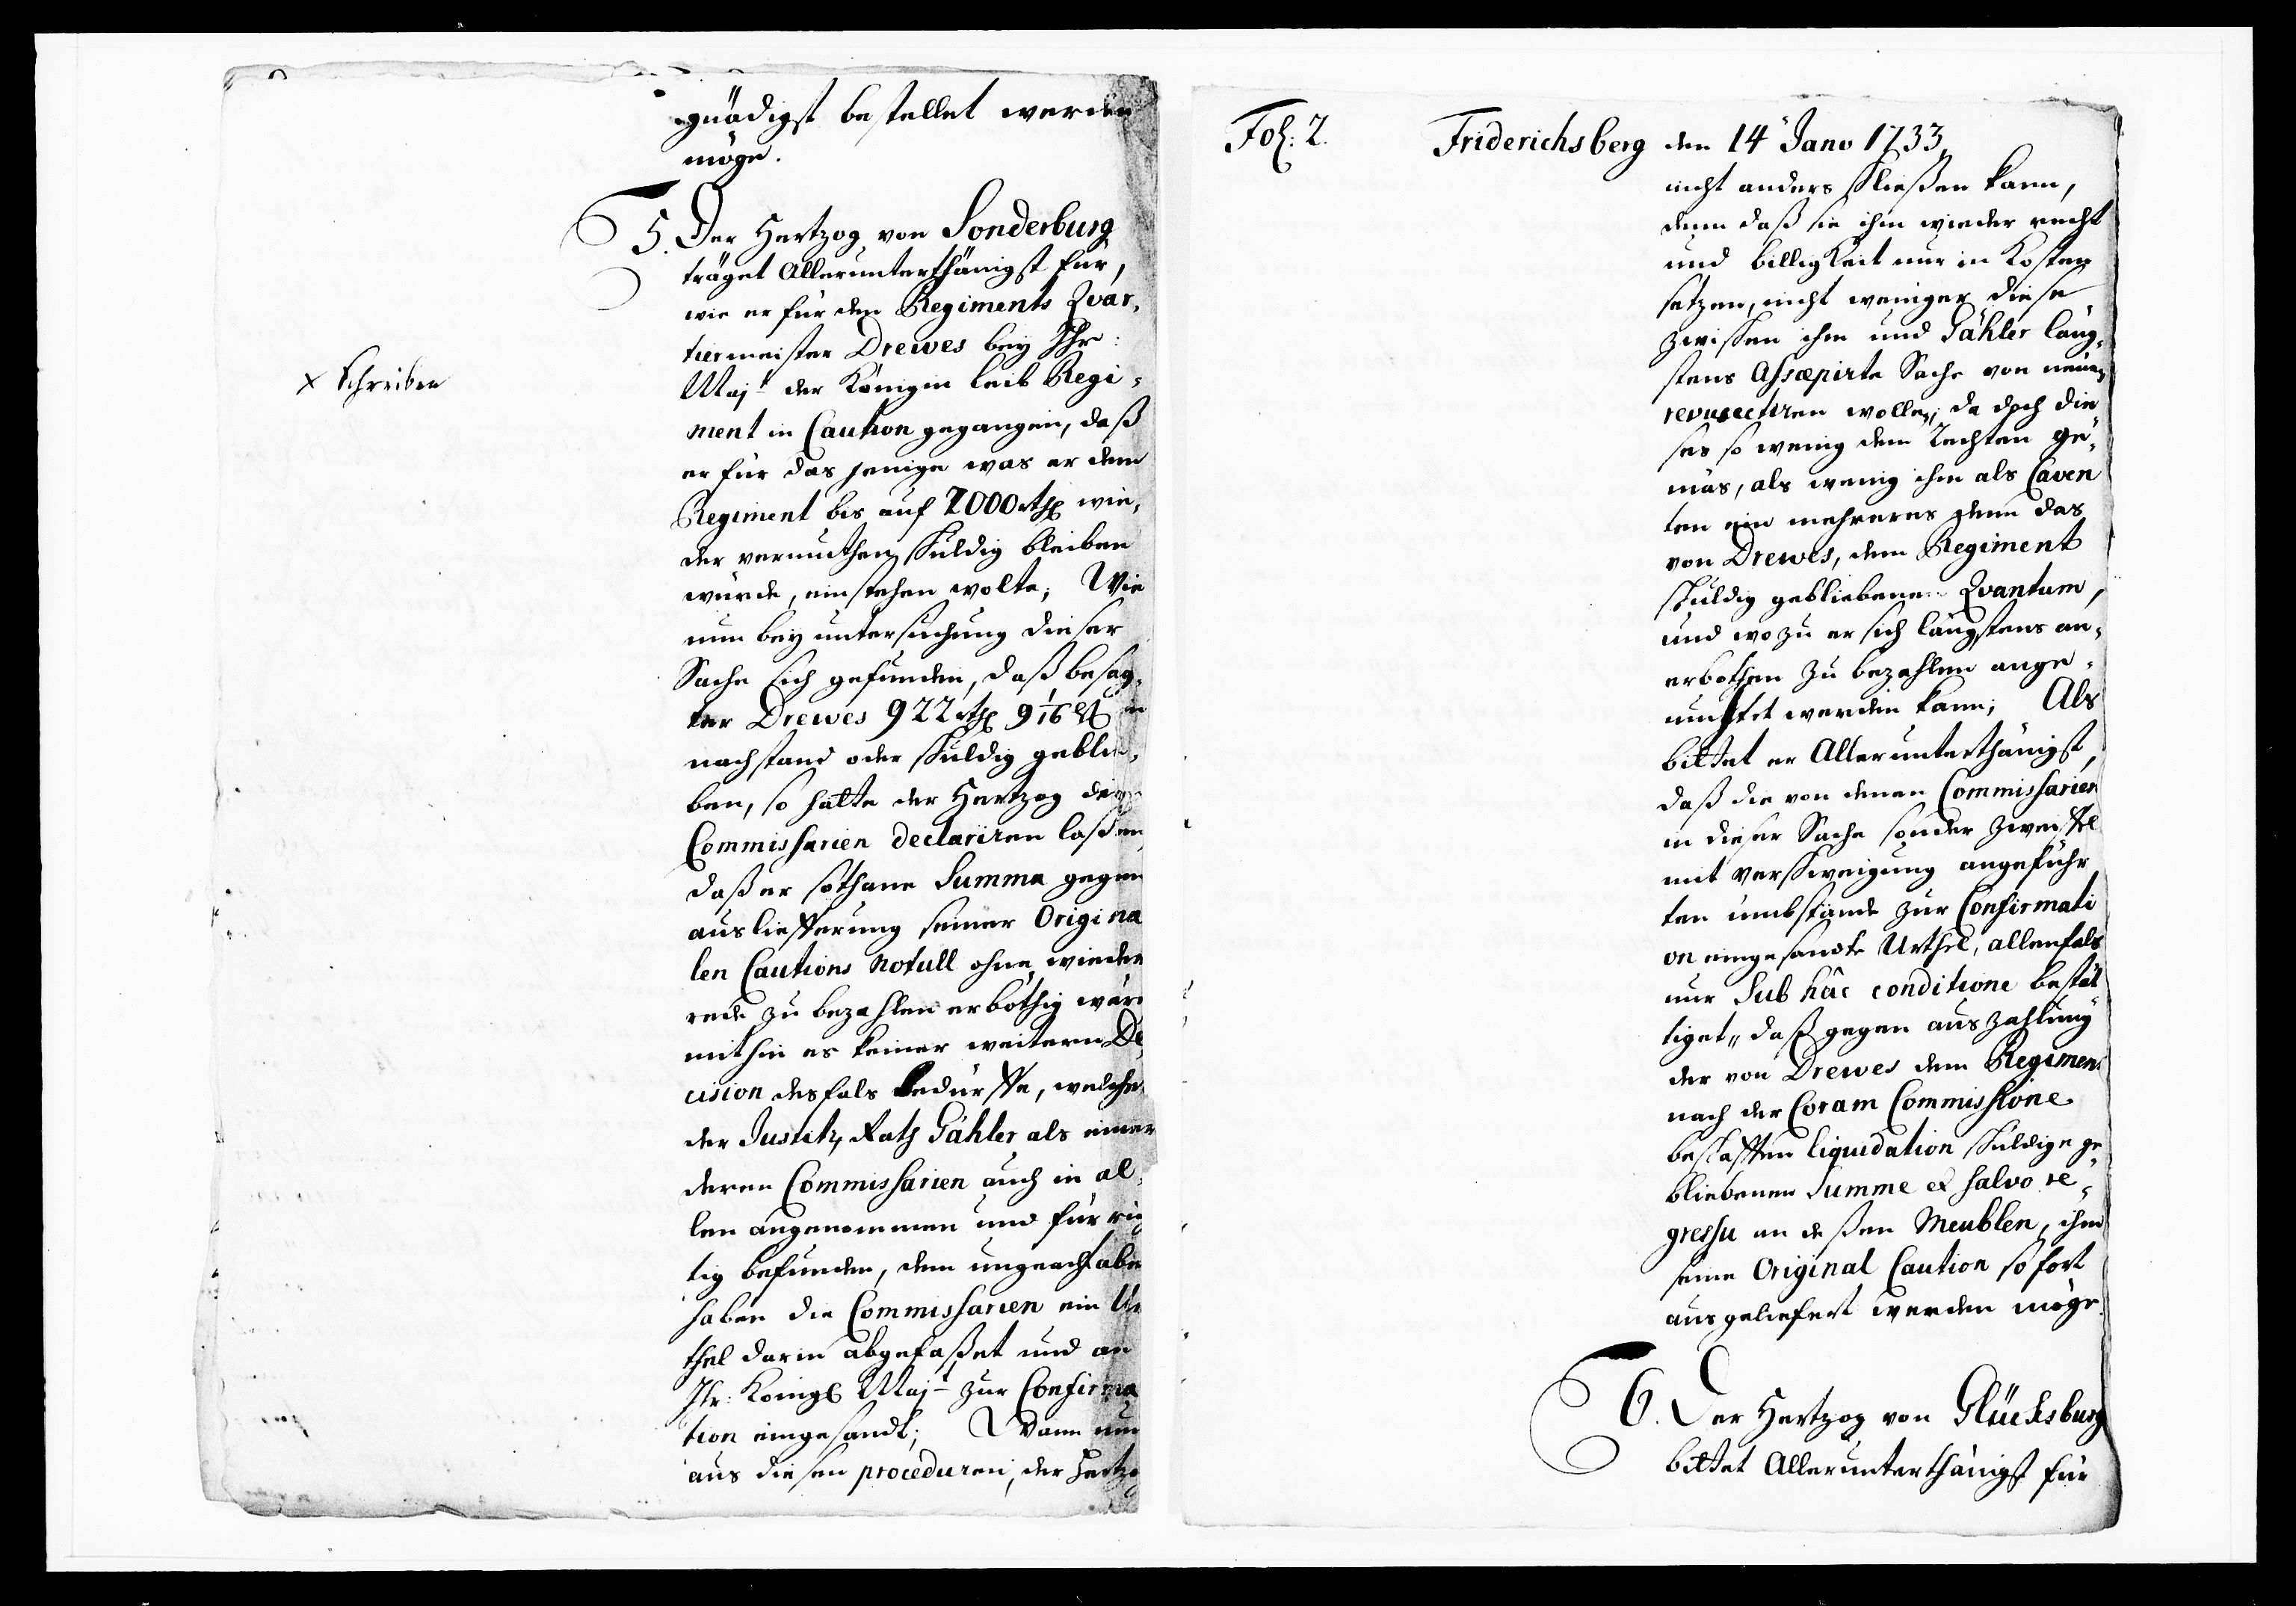 gnädigst bestellet werden
möge.
5. Der Hertzog von Sonderburg
träget Allerunterthänigst für,
wie er für den Regiments Qvar-
tiermeister Drewes bey Ihr:
x Schreiben
Maj.t der Königin leib Regi-
ment in Caution gegangen, daß
er für das jenige was er dem
Regiment bis auf 2000 rthl wie-
der vermuthen schuldig bleiben
würde, einstehen wolte; Wie
nun bey untersuchung dieser
Sache sich gefunden, daß besag-
ter Drewes 922 rthl in
nachstand oder schuldig geblie-
ben, so hatte der Hertzog denen
Commissarien declariren lassen
daß er sothane Summa gegen
auslieferung seiner Origina
len Cautions Notull ohne wieder
rede zu bezahlen erböthig wäre
mithin es keiner weitern De-
cision desfals bedürffe, welches
der Justitz Rath Gähler als einer
deren Commissarien auch in al-
len angenommen und für rich
tig befunden, dem ungeacht aber
haben die Commissarien ein Ur
thel darin abgefaßet und an
Ihr: Königl Maj.t zur Confirma
tion eingesandt; Wann nun
aus diesen proceduren, der Hertzog
Fol: 2. Friderichsberg den 14 Jano 1733
nicht anders schließen kann,
denn daß sie ihn wieder recht
und billigkeit nur in Kosten
setzen, nicht weniger diese
zwischen ihm und Gähler läng-
stens Assopirte Sache von neuen
resusciren wollen, da doch die-
ses so wenig dem Rechten ge-
mäs, als wenig ihm als Caven
ten ein mehreres denn das
von Drewes, dem Regiment
schuldig gebliebene Qvantum,
und wozu er sich längstens an-
erbothen zu bezahlen ange-
muhtet werden kann; Als
bittet er Allerunterthänigst,
daß die von denen Commissarien
in dieser Sache sonder zweiffel
mit verschweigung angeführ
ten umbstände zur Confirmati
on eingesandte Urthel, allenfals
nur Sub hâc conditione bestät
tiget, daß gegen auszahlung
der von Drewes dem Regiment
nach der Coram Commissione
beschafften liquidation schuldig ge-
bliebenen Summe et salvo re-
gressu an deßen Meublen, ihm
seine Original Caution sofort
ausgeliefert werden möge.
6. Der Hertzog von Glücksburg
bittet Allerunterthänigst für